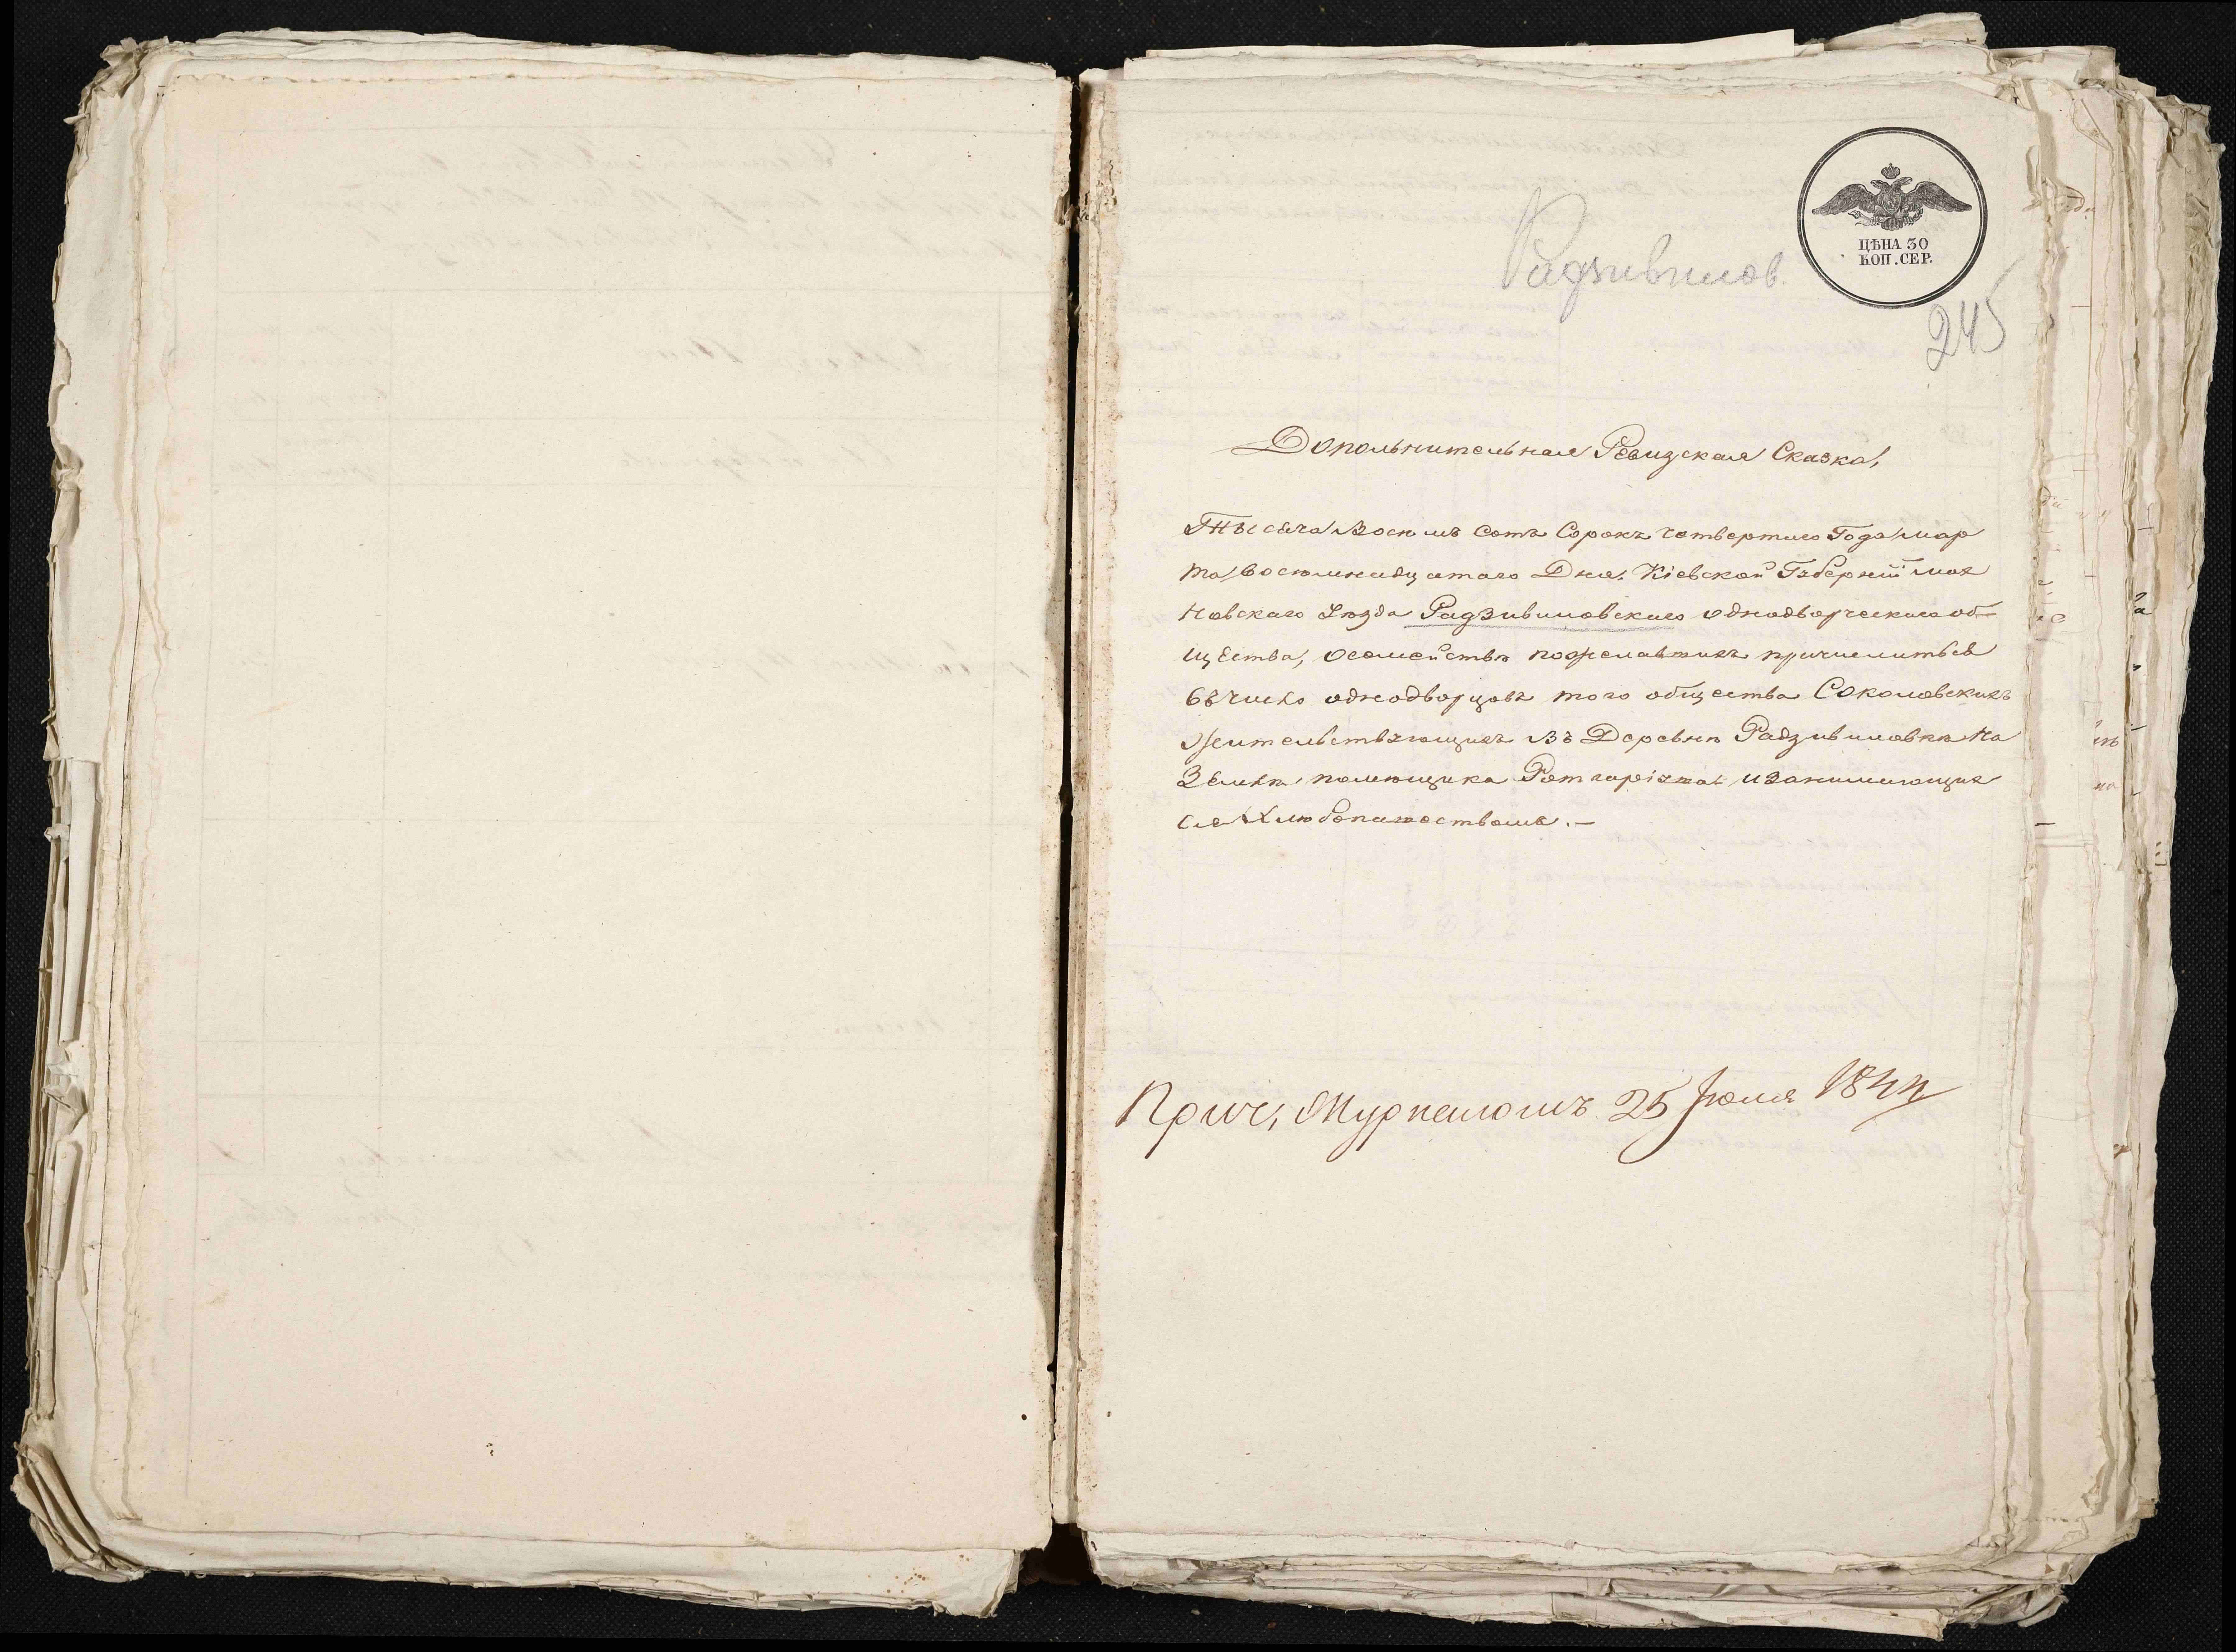 ЦѢНА 30
КОП. СЕР.
Радзивилов.
245
Дополнительная Ревизская Сказка,
Тысяча Восем сотъ Сорокъ четвертаго Года мар
та восемнадцатаго Дня. Кіевской Губерніи мах
новскаго Уѣзда Радзивиловскаго однодворческаго об-
щества, осемействѣ пожелавшихъ причислитьсь
въ число однодворцовъ того общества Соколовскихъ
Жительствующихъ Въ Деревнѣ Радзивиловкѣ На
Землѣ помѣщика изанимающих
ся Хлюбопашествомъ. —
25 Іюля 1844